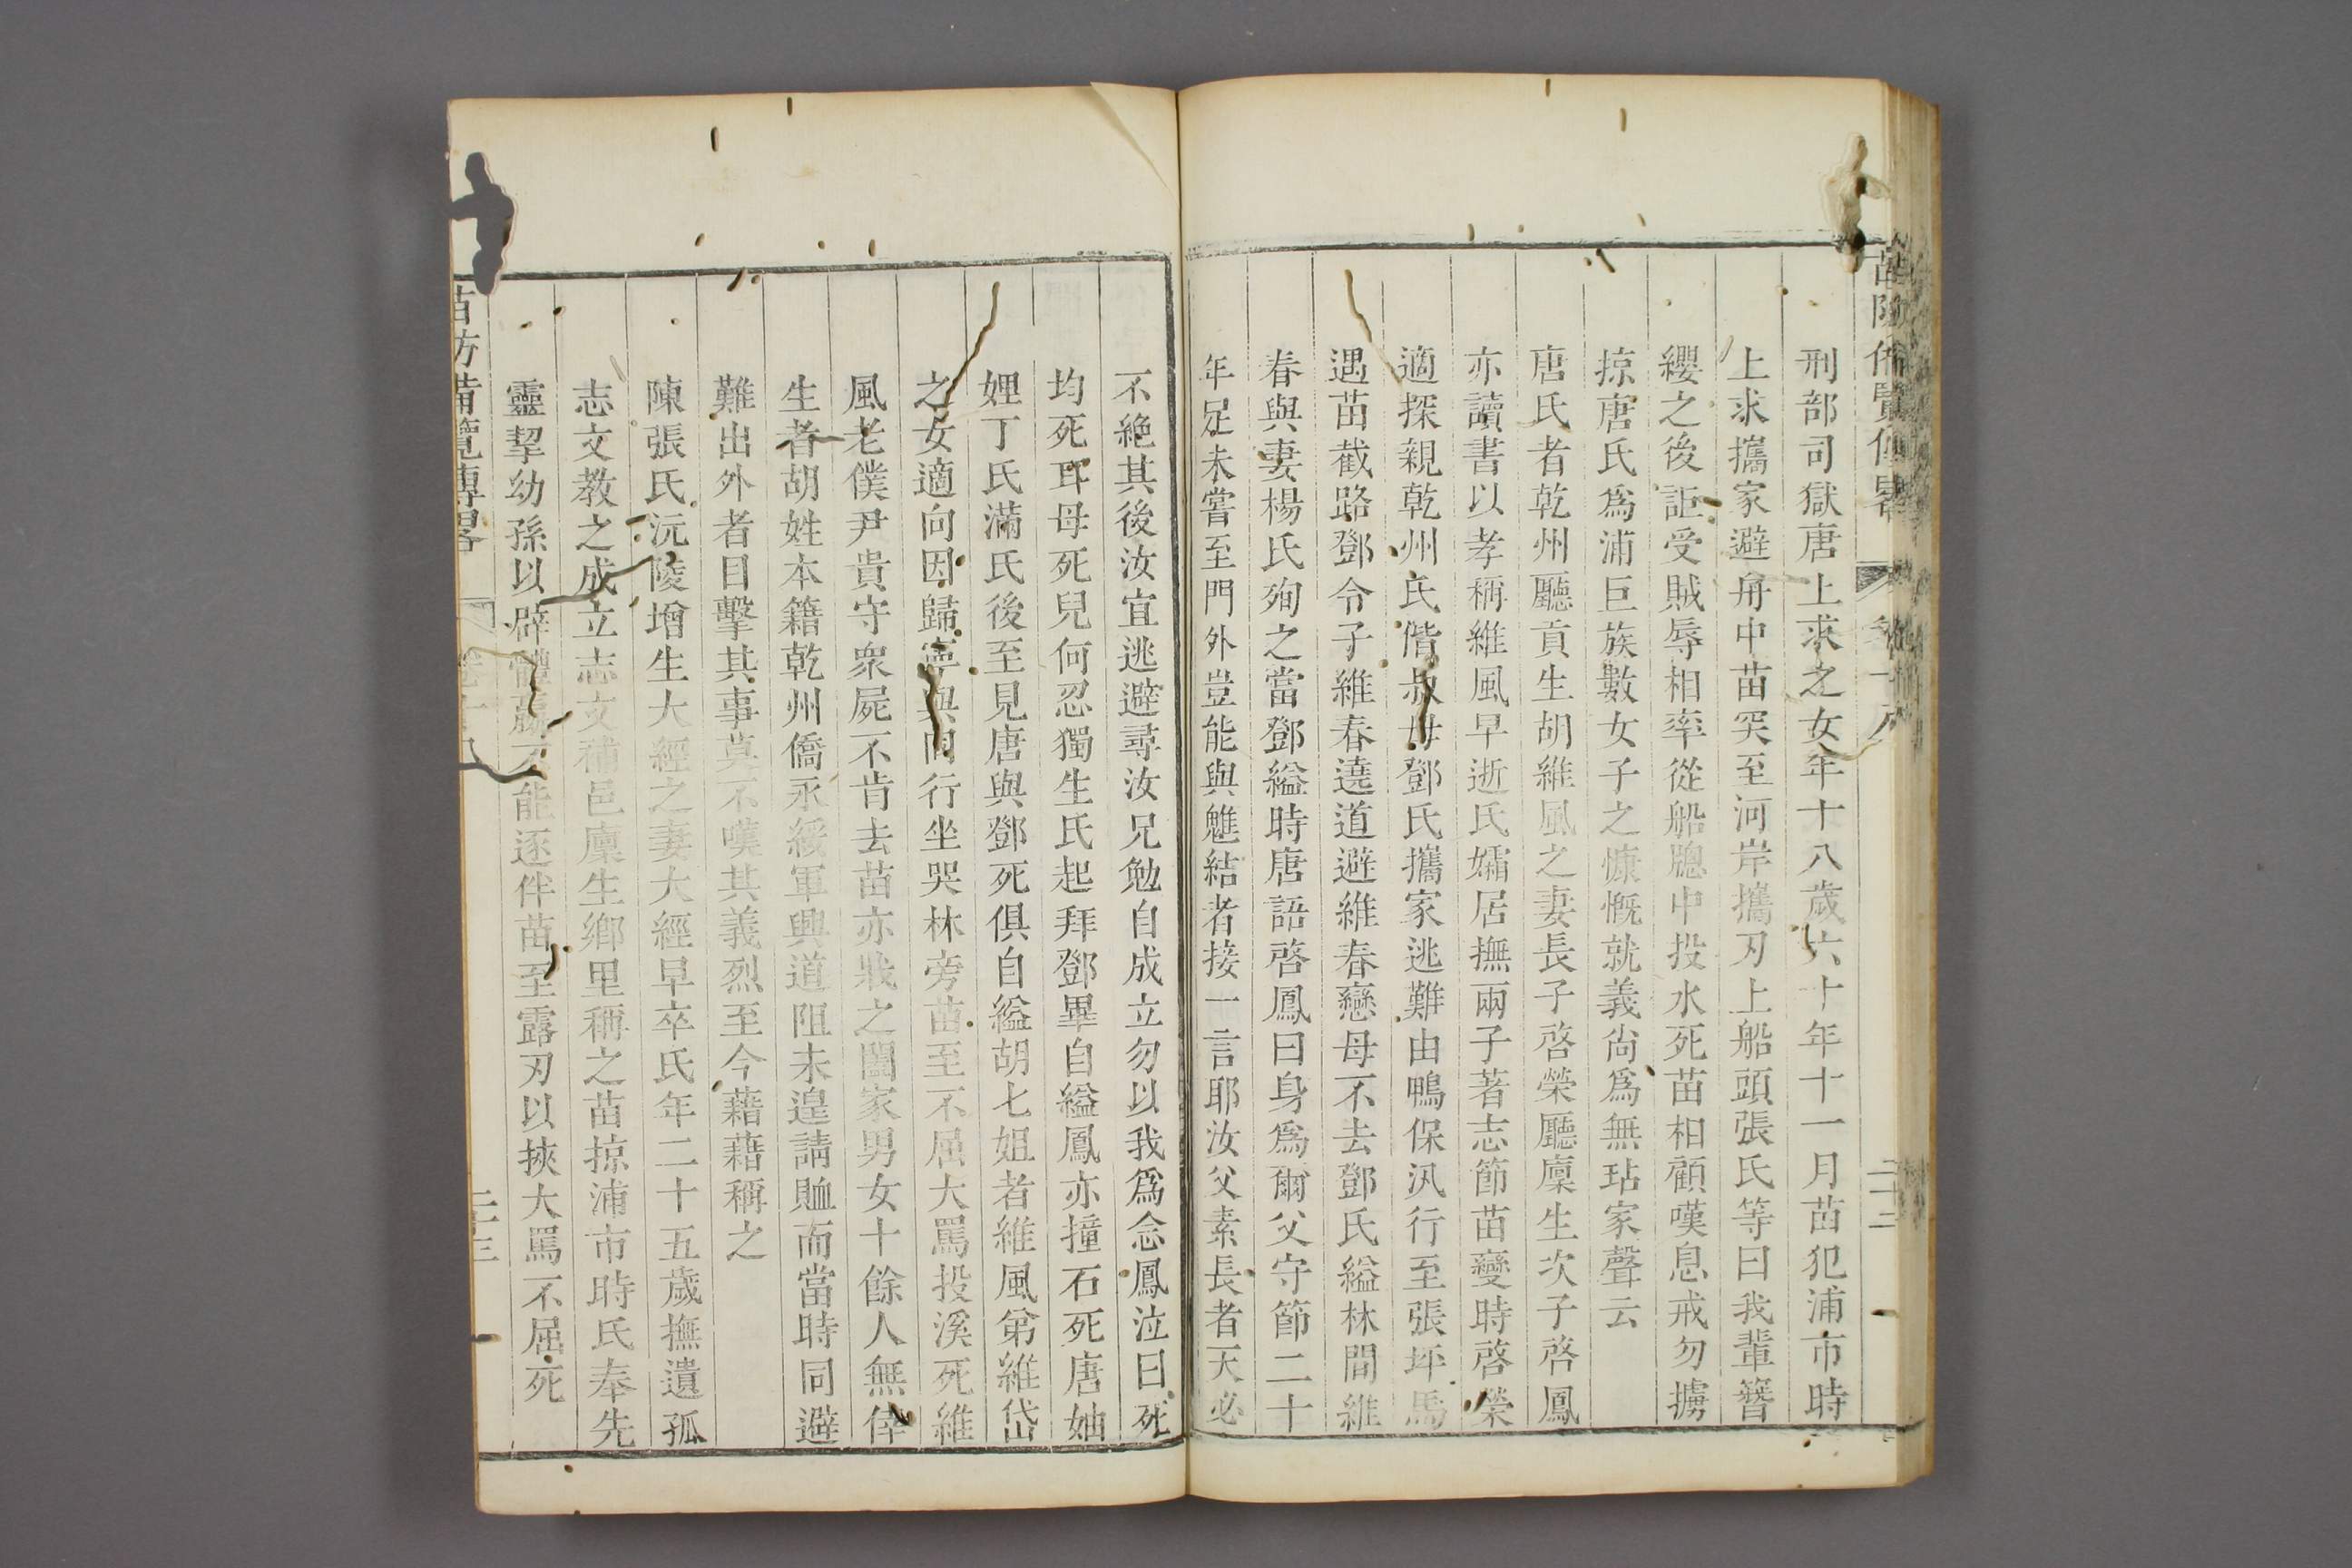 刑部司獄唐上求之女年十八歲六十年十一月苗犯浦市時
上求攜家避舟中苗突至河岸攜刃上船頭張氏等曰我輩簪
纓之後詎受賊辱相率從船牕中投水死苗相顧嘆息戒勿擄
掠唐氏爲浦巨族數女子之慷慨就義尙爲無玷家聲云
唐氏者乾州廳貢生胡維風之妻長子啓榮廳廩生次子啓鳳
亦讀書以孝稱維風早逝氏孀居撫兩子著志節苗變時啓榮
適探親乾州氏偕叔母鄧氏攜家逃難由鴨保汛行至張坪馬
遇苗截路鄧令子維春遶道避維春戀母不去鄧氏縊林間維
春與妻楊氏殉之當鄧縊時唐語啓鳳曰身爲爾父守節二十
年足未嘗至門外豈能與魋結者接一言耶汝父素長者天必
不絶其後汝宜逃避尋汝兄勉自成立勿以我爲念鳳泣曰死
均死耳母死兒何忍獨生氏起拜鄧畢自縊鳳亦撞石死唐妯
娌丁氏滿氏後至見唐與鄧死俱自縊胡七姐者維風弟維岱
之女適向因歸寧與同行坐哭林旁苗至不屈大罵投溪死維
風老僕尹貴守衆屍不肯去苗亦戕之闔家男女十餘人無倖
生者胡姓本籍乾州僑永綏軍興道阻未遑請䘏而當時同避
難出外者目擊其事莫不嘆其義烈至今藉藉稱之
陳張氏沅陵增生大經之妻大經早卒氏年二十五歲撫遺孤
志文教之成立志文補邑廩生鄉里稱之苗掠浦市時氏奉先
靈挈幼孫以辟體羸不能逐伴苗至露刃以挾大罵不屈死
苗防備覽傳畧 卷十八 二十三